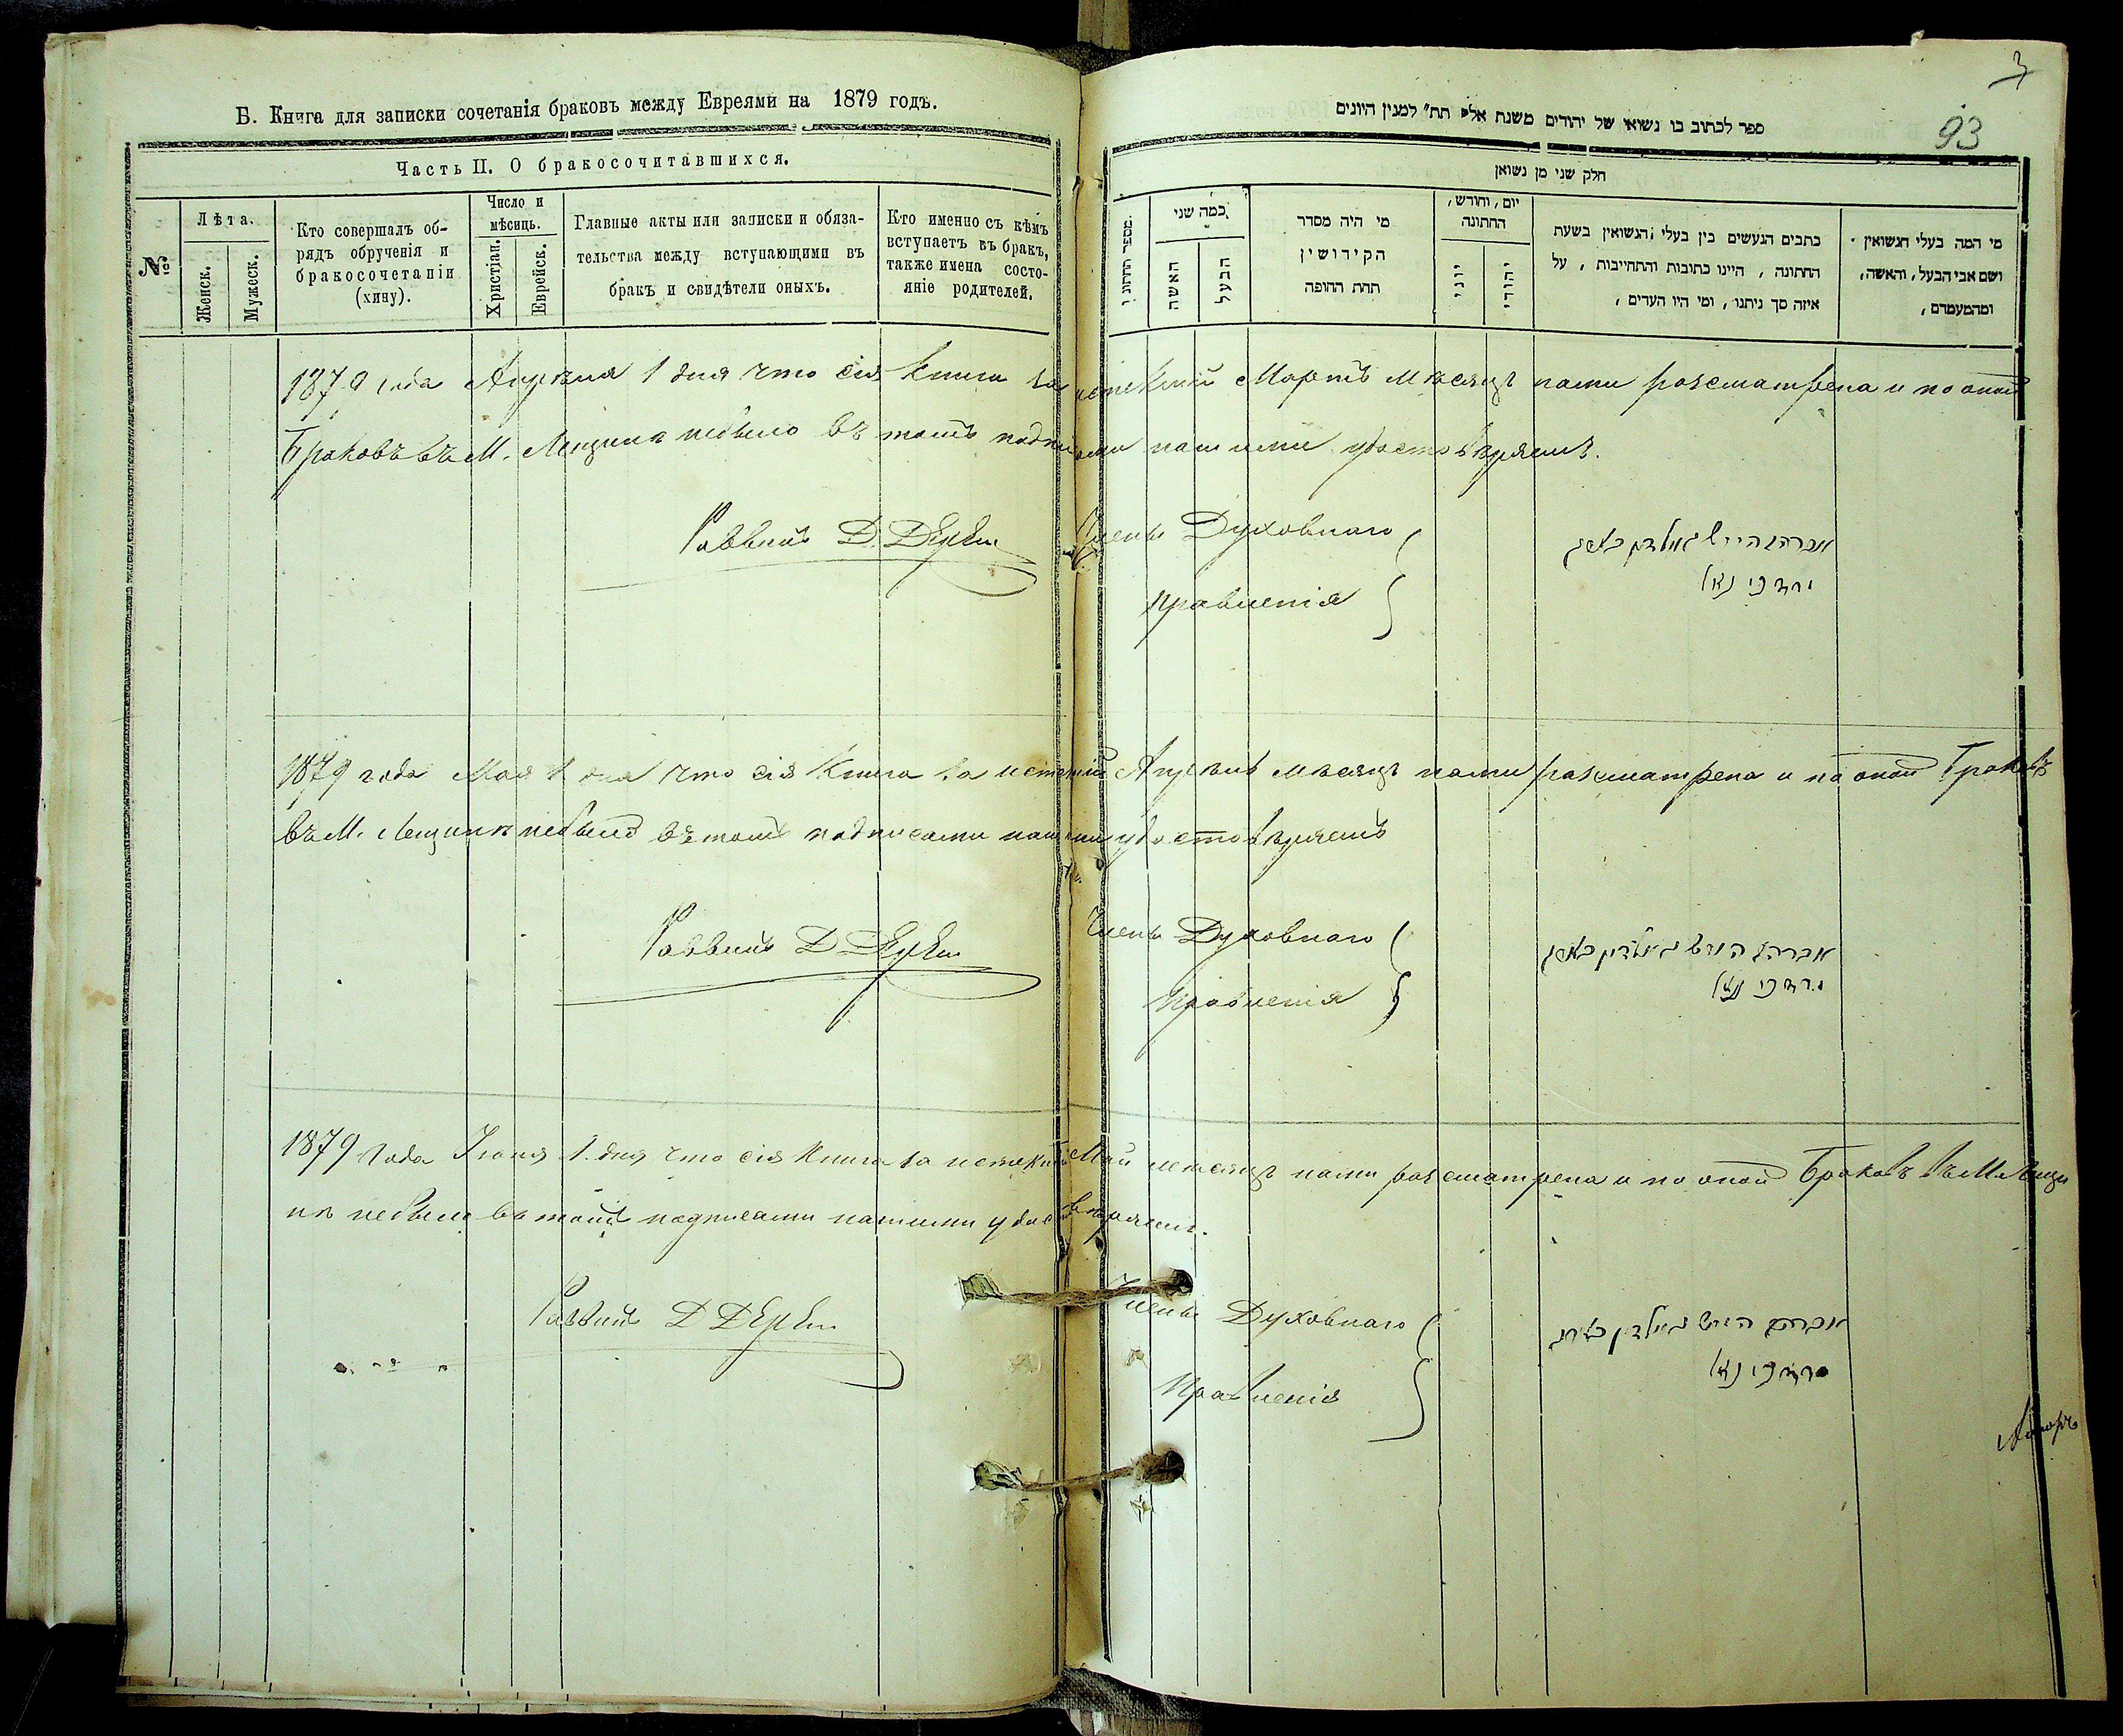 Б. Книга для записки сочетанія браковъ между Евреями на 1879 годъ.
Часть II. О бракосочитавшихся.
№
Лѣта.
Женск.
Мужеск.
Кто совершалъ об-
рядъ обрученія и
бракосочетаніи
(хину).
Число и
мѣсяць.
Христіан.
Еврейск.
Главные акты или записки и обяза-
тельства между вступающими въ
бракъ и свидѣтели оныхъ.
Кто именно съ кѣмъ
вступаетъ въ бракъ,
также имена состо-
яніе родителей.
3
93
ספר לכתוב בו נשואי של יהודים משנת אלף תת״ למנין היונים
חלק שני מן נשואן
כמה שני
האשה
הבעל
מי היה מסדר
הקידושין
תחת החופה
יום, וחודש,
החתונה
יוני
יהודי
כתבים הנעשים בין בעלי הנשואין בשעת
החתונה, היינו כתובות והתחייבות, על
איזה סך ניתנו, ומי היו העדים,
מי המה בעלי הנשואין
ושם אבי הבעל, והאשה,
ומהמעמדם,
1879 года Апрѣля 1 дня что сія Книга за истекшій Мартъ Мѣсяцъ нами разсматрена и по оной
Браковъ въ М. Лещинѣ небыло въ томъ подписами нашими удостовѣряемъ.
Раввинъ Д.
Члены Духовнаго
Правленія
אברהם הירש
מרדכי
1879 года Мая 1 дня что сія Книга за истекшій Апрѣль мѣсяцъ нами разсматрена и по оной Браковъ
въ М. Лещинѣ небыло въ томъ подписами нашими удостовѣряемъ
Раввинъ Д
Члены Духовнаго
Правленія
אברהם הירש
מרדכי
1879 года Іюня 1 дня что сія Книга за истекшій Май мѣсяцъ нами разсматрена и по оной Браковъ въ М. Лещи
нѣ небыло въ томъ подписами нашими удостовѣряемъ.
Раввинъ Д
Члены Духовнаго
Правленія
אברהם הירש
מרדכי